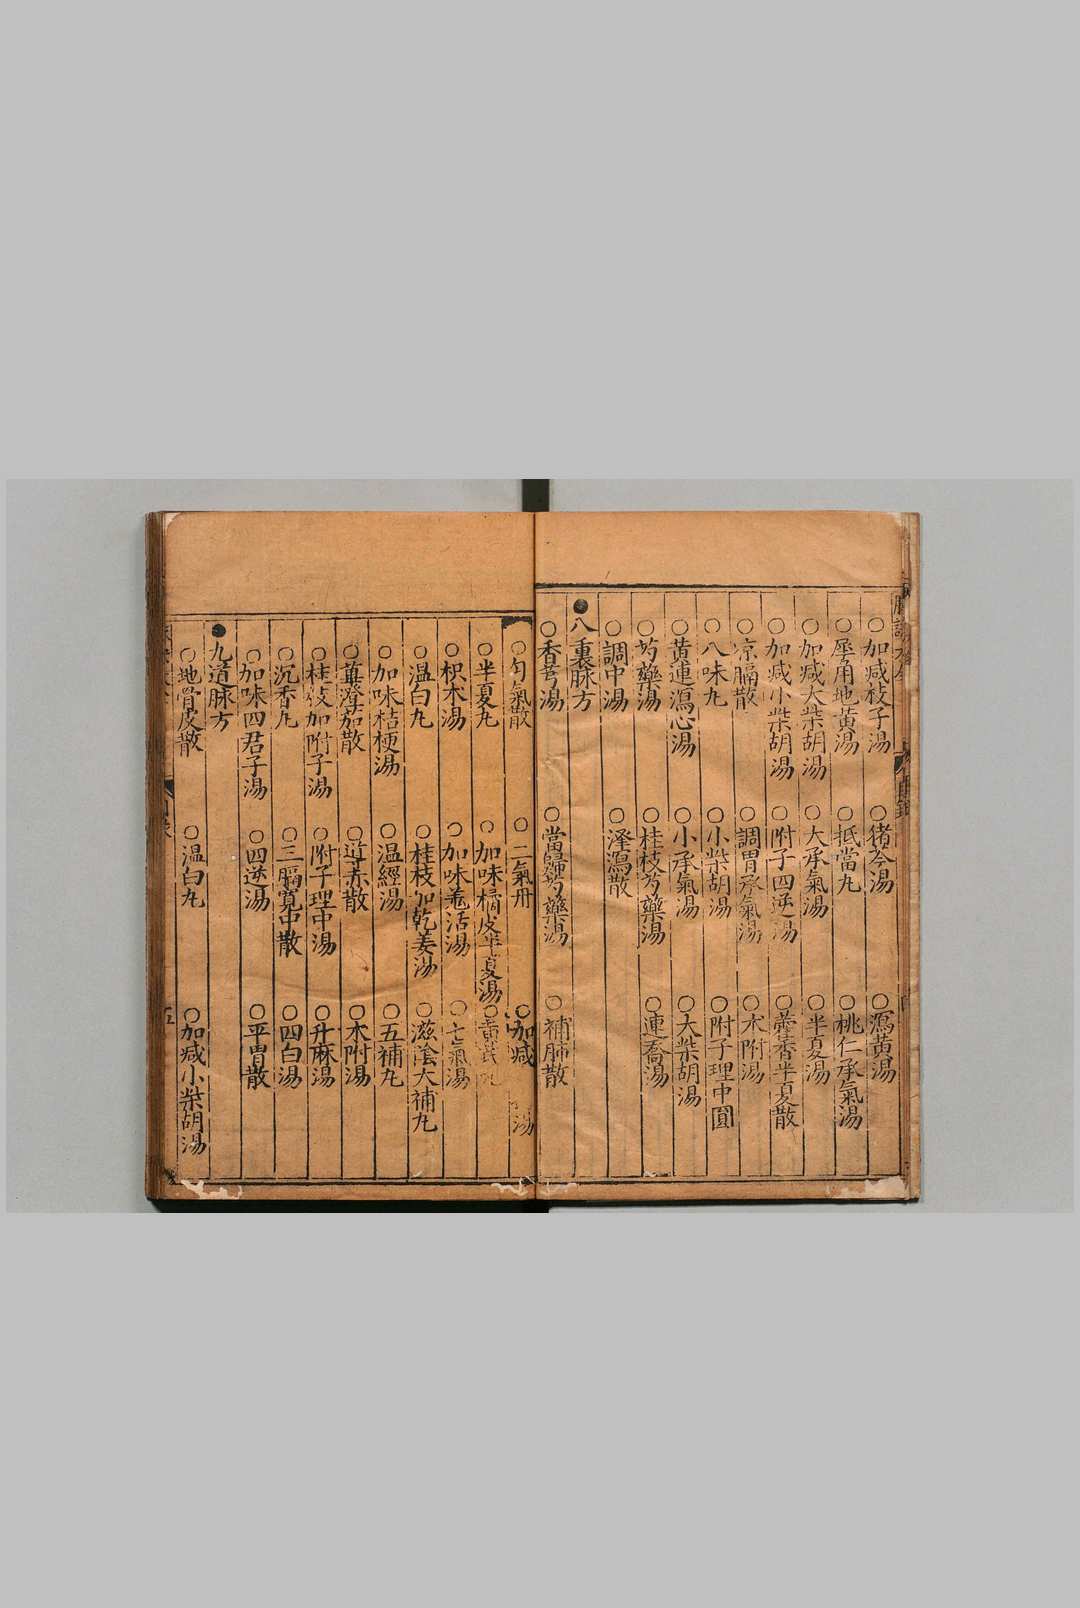 ○加减梔子湯　○猪苓湯　○瀉黄湯
○犀角地黄湯　○抵當丸　○桃仁承氣湯
○加减大柴胡湯　○大承氣湯　○半夏湯
○加减小柴胡湯　○附子四逆湯　○藿香半夏散
○凉膈散　○調胃承氣湯　○术附湯
○八味丸　○小柴胡湯　○附子理中圓
○黄連瀉心湯　○小承氣湯　○大柴胡湯
○芍藥湯　○桂枝芍藥湯　○連喬湯
○調中湯　○澤瀉散
●八裏脉方
○香芎湯　○當歸芍藥湯　○補肺散
○勻氣散　○二氣丹　○加减 湯
○半夏丸　○加味橘皮半夏湯
○枳术湯　○加味羗活湯　○七氣湯
○温白丸　○桂枝加乾姜湯　○滋陰大補丸
○加味桔梗湯　○温經湯　○五補丸
○蓽澄茄散　○導赤散　○术附湯
○桂枝加附子湯　○附子理中湯　○升麻湯
○沉香丸　○三膈寛中散　○四白湯
○加味四君子湯　○四逆湯　○平胃散
●九道脉方
○地骨皮散　○温白丸　○加减小柴胡湯
目録
五